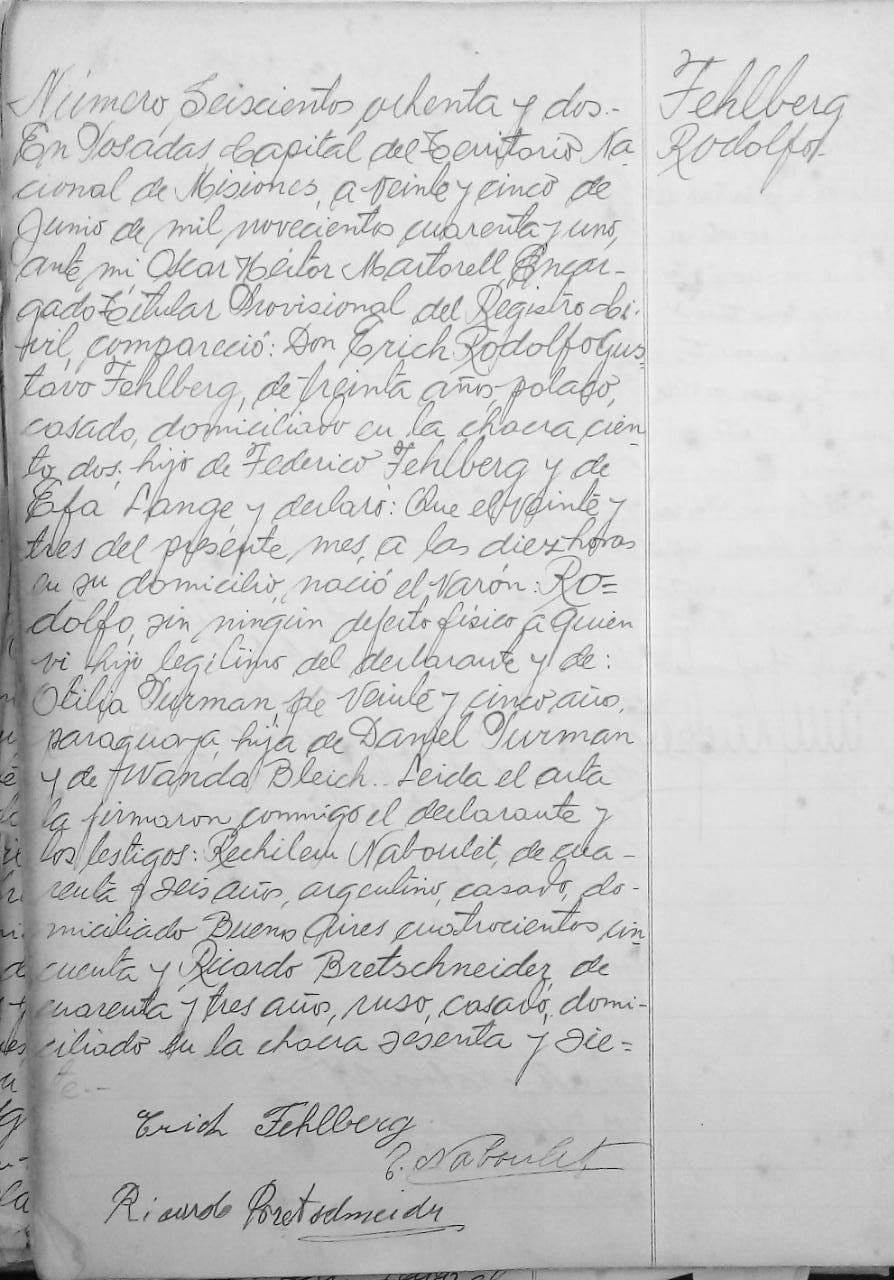 Fehlberg
Rodolfo.
Número Seiscientos ochenta y dos.-
En Posadas Capital del Territorio Na-
cional de Misiones, a Veinte y cinco de
Junio de mil novecientos cuarenta y uno,
ante mi Oscar Héctor Martorell, Encar-
gado Titular Provisional del Registro Ci-
vil, compareció: Don Erich Rodolfo Gus-
tavo Fehlberg, de treinta años, polaco,
casado, domiciliado en la chacra cien-
to dos; hijo de Federico Fehlberg y de
Efa Lange y declaró: Que el Veinte y
tres del presente mes, a las diez horas
en su domicilio, nació el Varón: Ro=
dolfo, sin ningún defecto físico a quien
vi hijo legítimo del declarante y de:
Otilia Purman, de Veinte y cinco años,
paraguaya, hija de Daniel Purman
y de Wanda Bleich.. Leida el acta
la firmaron conmigo el declarante y
los testigos: Naboulet, de cua-
renta y seis años, argentino, casado, do-
miciliado Buenos Aires cuatrocientos cin-
cuenta y Ricardo Bretschneider, de
cuarenta y tres años, ruso, casado, domi-
ciliado en la chacra sesenta y sie=
te.--
Erich Fehlberg
Naboulet
Ricardo Bretschneider